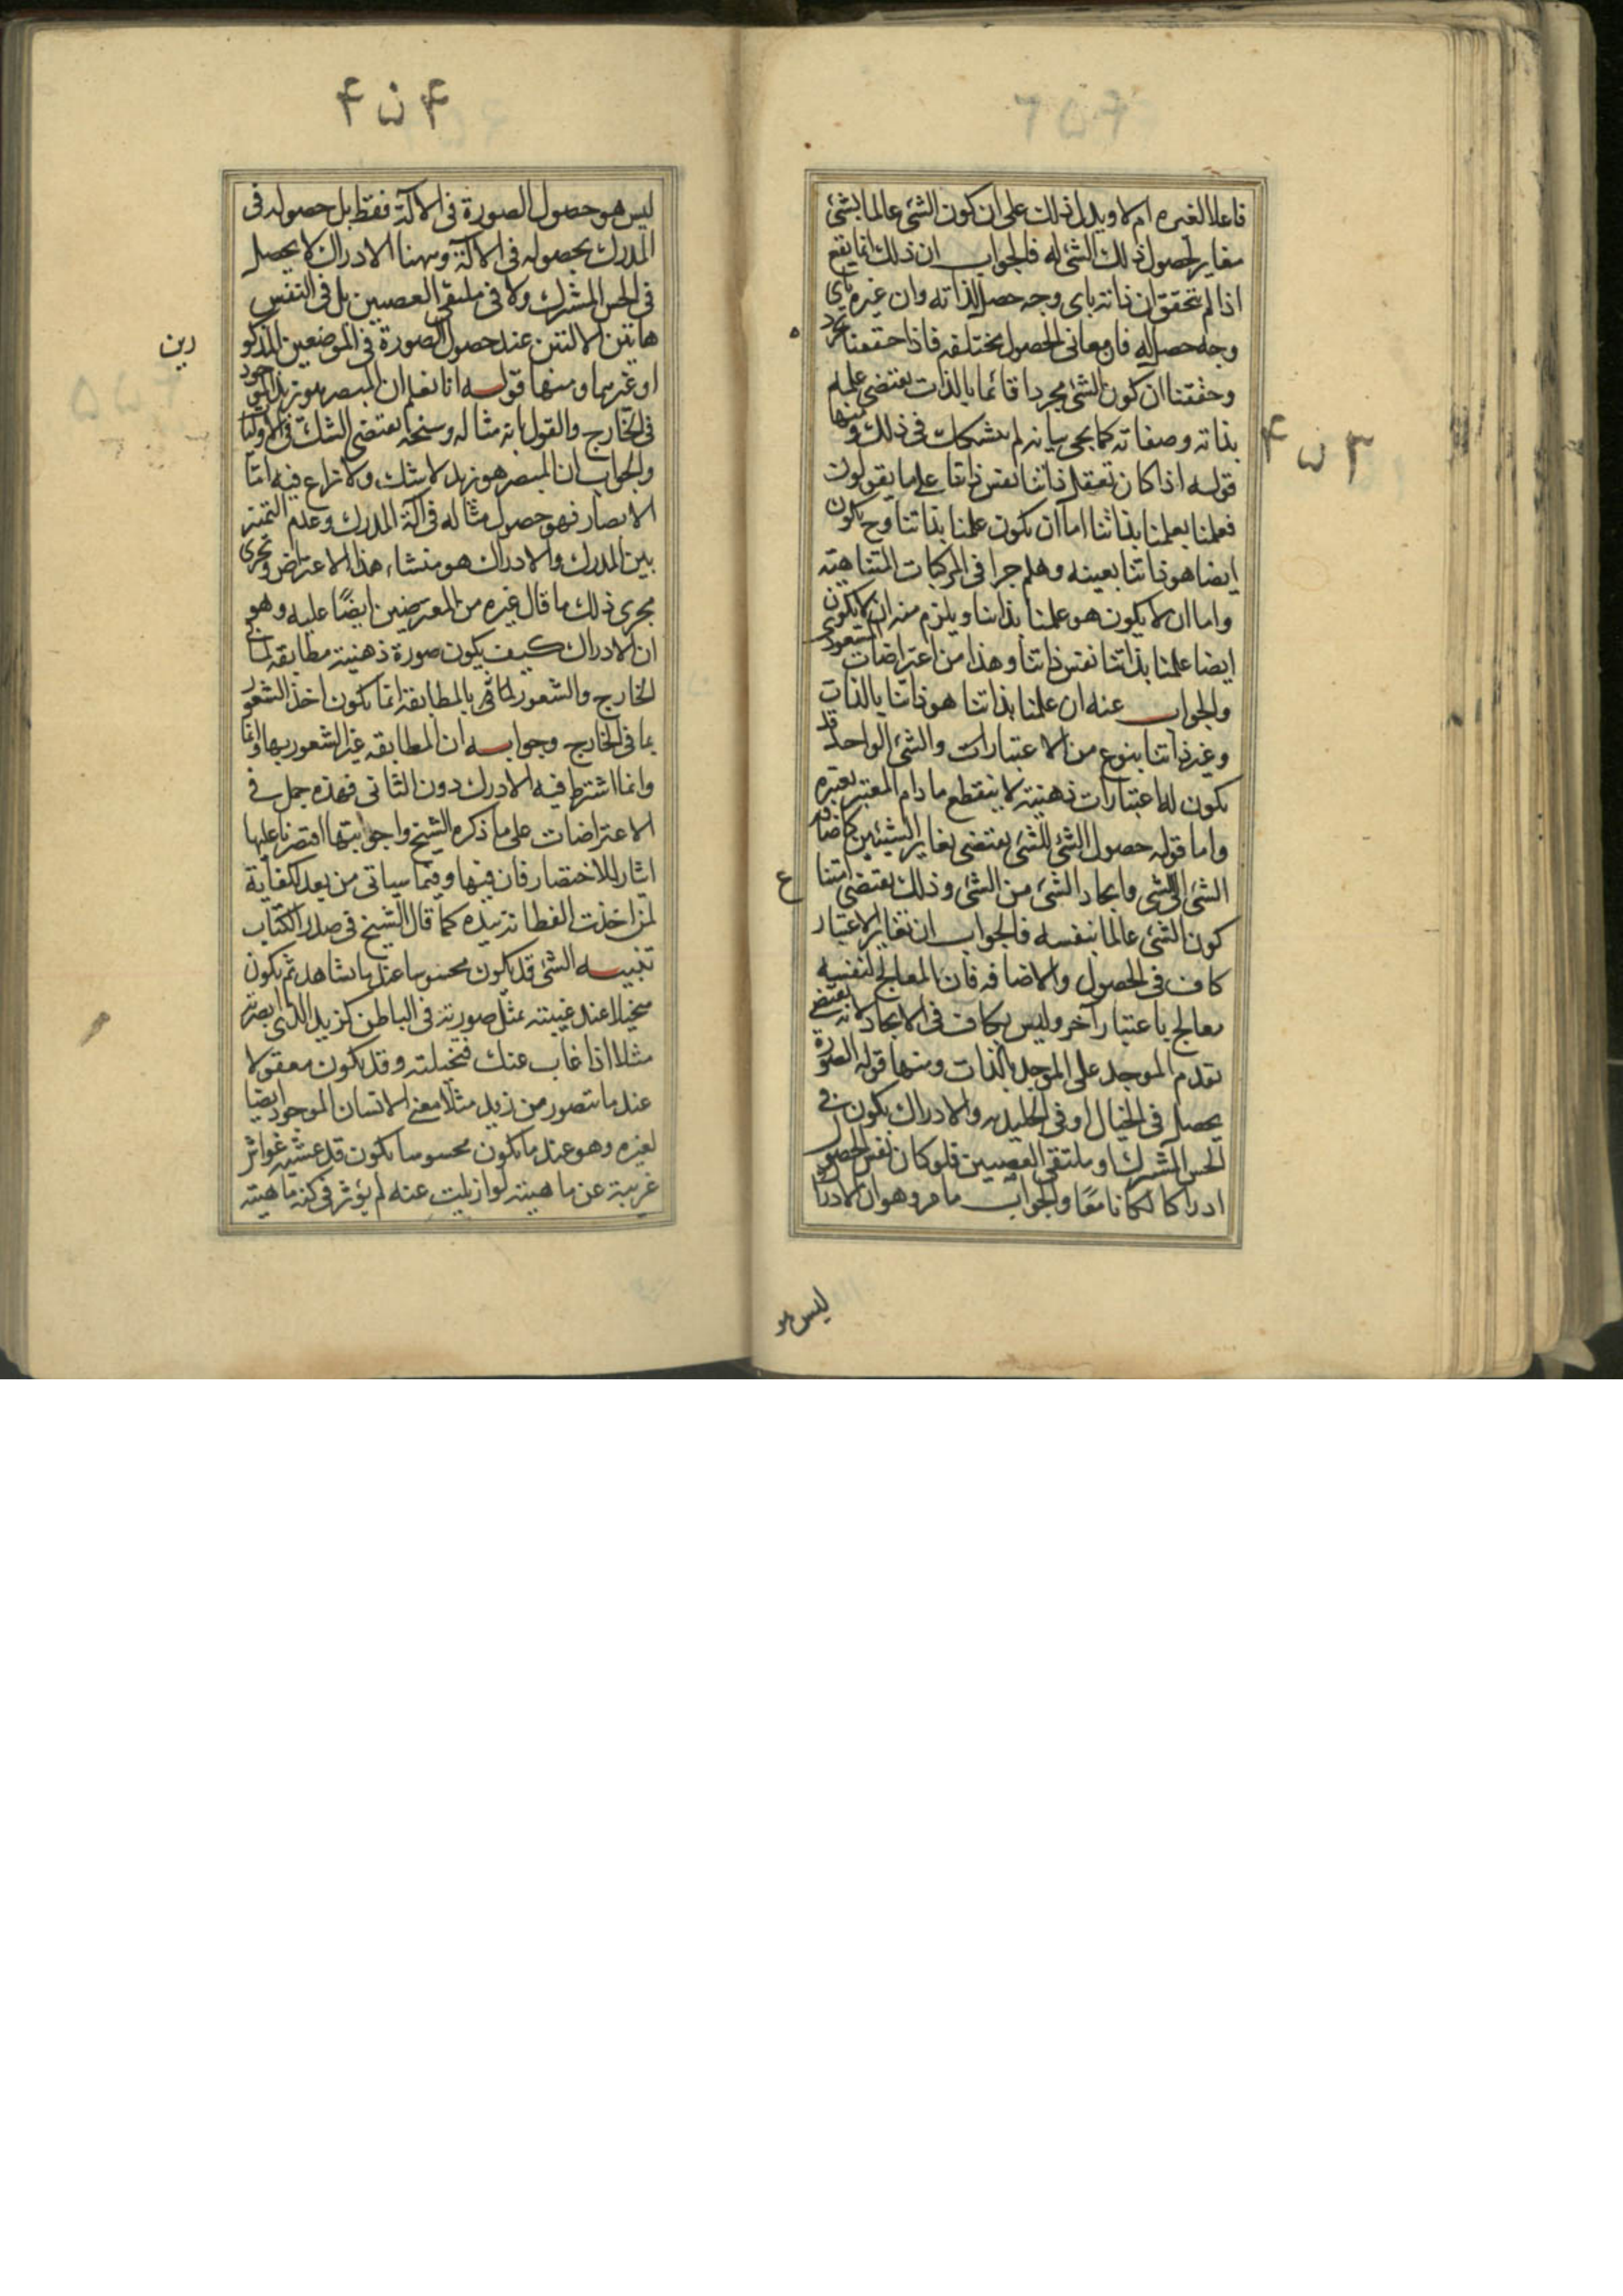 ٤٥٣
فاعلا لغيره ام لا ويدل ذلك على ان كون الشئ عالما بشئ
مغاير لحصول ذلك الشئ له فالجواب ان ذلك انما يقع
اذا لم يتحقق ان ذاته باى وجه حصل لذاته وان غيره باى
وجه حصل له فان معانى الحصول مختلفه فاذا حققنا تجرد
وحققنا ان كون الشئ مجردا قائما بالذات يقتضى علمه
بذاته وصفاته كما يجى بيانه لم نشك فى ذلك ومنها
قوله اذا كان تعقل ذاتنا نفس ذاتنا على ما يقولون
فعلمنا بعلمنا بذاتنا اما ان يكون علمنا بذاتنا وح يكون
ايضا هو ذاتنا بعينه وهلم جرا فى المركبات المتناهيه
واما ان لا يكون هو علمنا بذاتنا ويلزم منه ان لا يكون
ايضا علمنا بذاتنا نفس ذاتنا وهذا من اعتراضات المسعودى
والجواب عنه ان علمنا بذاتنا هو ذاتنا بالذات
وغير ذاتنا بنوع من الاعتبارات والشئ الواحد قد
يكون له اعتبارات ذهنية لا ينقطع ما دام المعتبر يعتبره
واما قوله حصول الشئ للشئ يقتضى تغاير الشيئين كاضافة
الشئ الى الشى وايجاد الشئ من الشئ وذلك يقتضى امتنا
ع
كون الشئ عالما بنفسه فالجواب ان تغاير الاعتبار
كاف فى الحصول والاضافه فان المعالج لنفسه
معالج باعتبار آخر وليس بكاف فى الايجاد لانه يقتضى
تقدم الموجد على الموجد بالذات ومنها قوله الصورة
يحصل فى الخيال او فى الجليديه والادراك يكون فى
الحس المشترك او ملتقى العصبين فلو كان نفس الحصول
ادراكا لكانا معًا والجواب ما مر وهو ان الادراك
ليس هو
٤٥٤
ليس هو حصول الصورة فى الالآلة فقط بل حصوله فى
المدرك بحصوله فى الالآلة وههنا الادراك لا يحصل
فى الحس المشترك ولا فى ملتقى العصبين بل فى النفس
هاتين الالتين عند حصول الصورة فى الموضعين المذكو
رين
او غيرهما ومنها قوله انا نعلم ان المبصر هو زيد الموجود
فى الخارج والقول بانه مثاله وشبحه يقتضى الشك فى الاوليا
والجواب ان المبصر هو زيد لا شك ولا نزاع فيه امّا
الابصار فهو حصول مثاله فى آلة المدرك وعدم التميز
بين المدرك والادراك هو منشاء هذا الاعتراض ويجرى
مجرى ذلك ما قال غيره من المعترضين ايضًا عليه وهو
ان الادراك كيف يكون صورة ذهنية مطابقة لما فى
الخارج والشعور بالمطابقة انما يكون اخذ الشعور
بما فى الخارج وجوابه ان المطابقه غير الشعور بها وانما
وانما اشترط فيه الادرك دون الثانى فهذه جمل فى
الاعتراضات على ما ذكره الشيخ واجوبتها اقتصرنا عليها
ايثارا للاختصار فان فيها وفيما سياتى من بعد كفاية
لمن اخذت الفطانة بيده كما قال الشيخ فى صدر الكتاب
تنبيه الشئ قد يكون محسوسا عند ما يشاهد ثم يكون
متخيلا عند غيبته بتمثّل صورته فى الباطن كزيد الذى ابصرته
مثلا اذا غاب عنك فتخيلته وقد يكون معقولا
عند ما يتصور من زيد مثلا معنى الانسان الموجود ايضا
لغيره وهو عند ما يكون محسوسا يكون قد غشيته غواش
غريبة عن ماهيته لو ازيلت عنه لم يؤثر فى كنه ماهيته